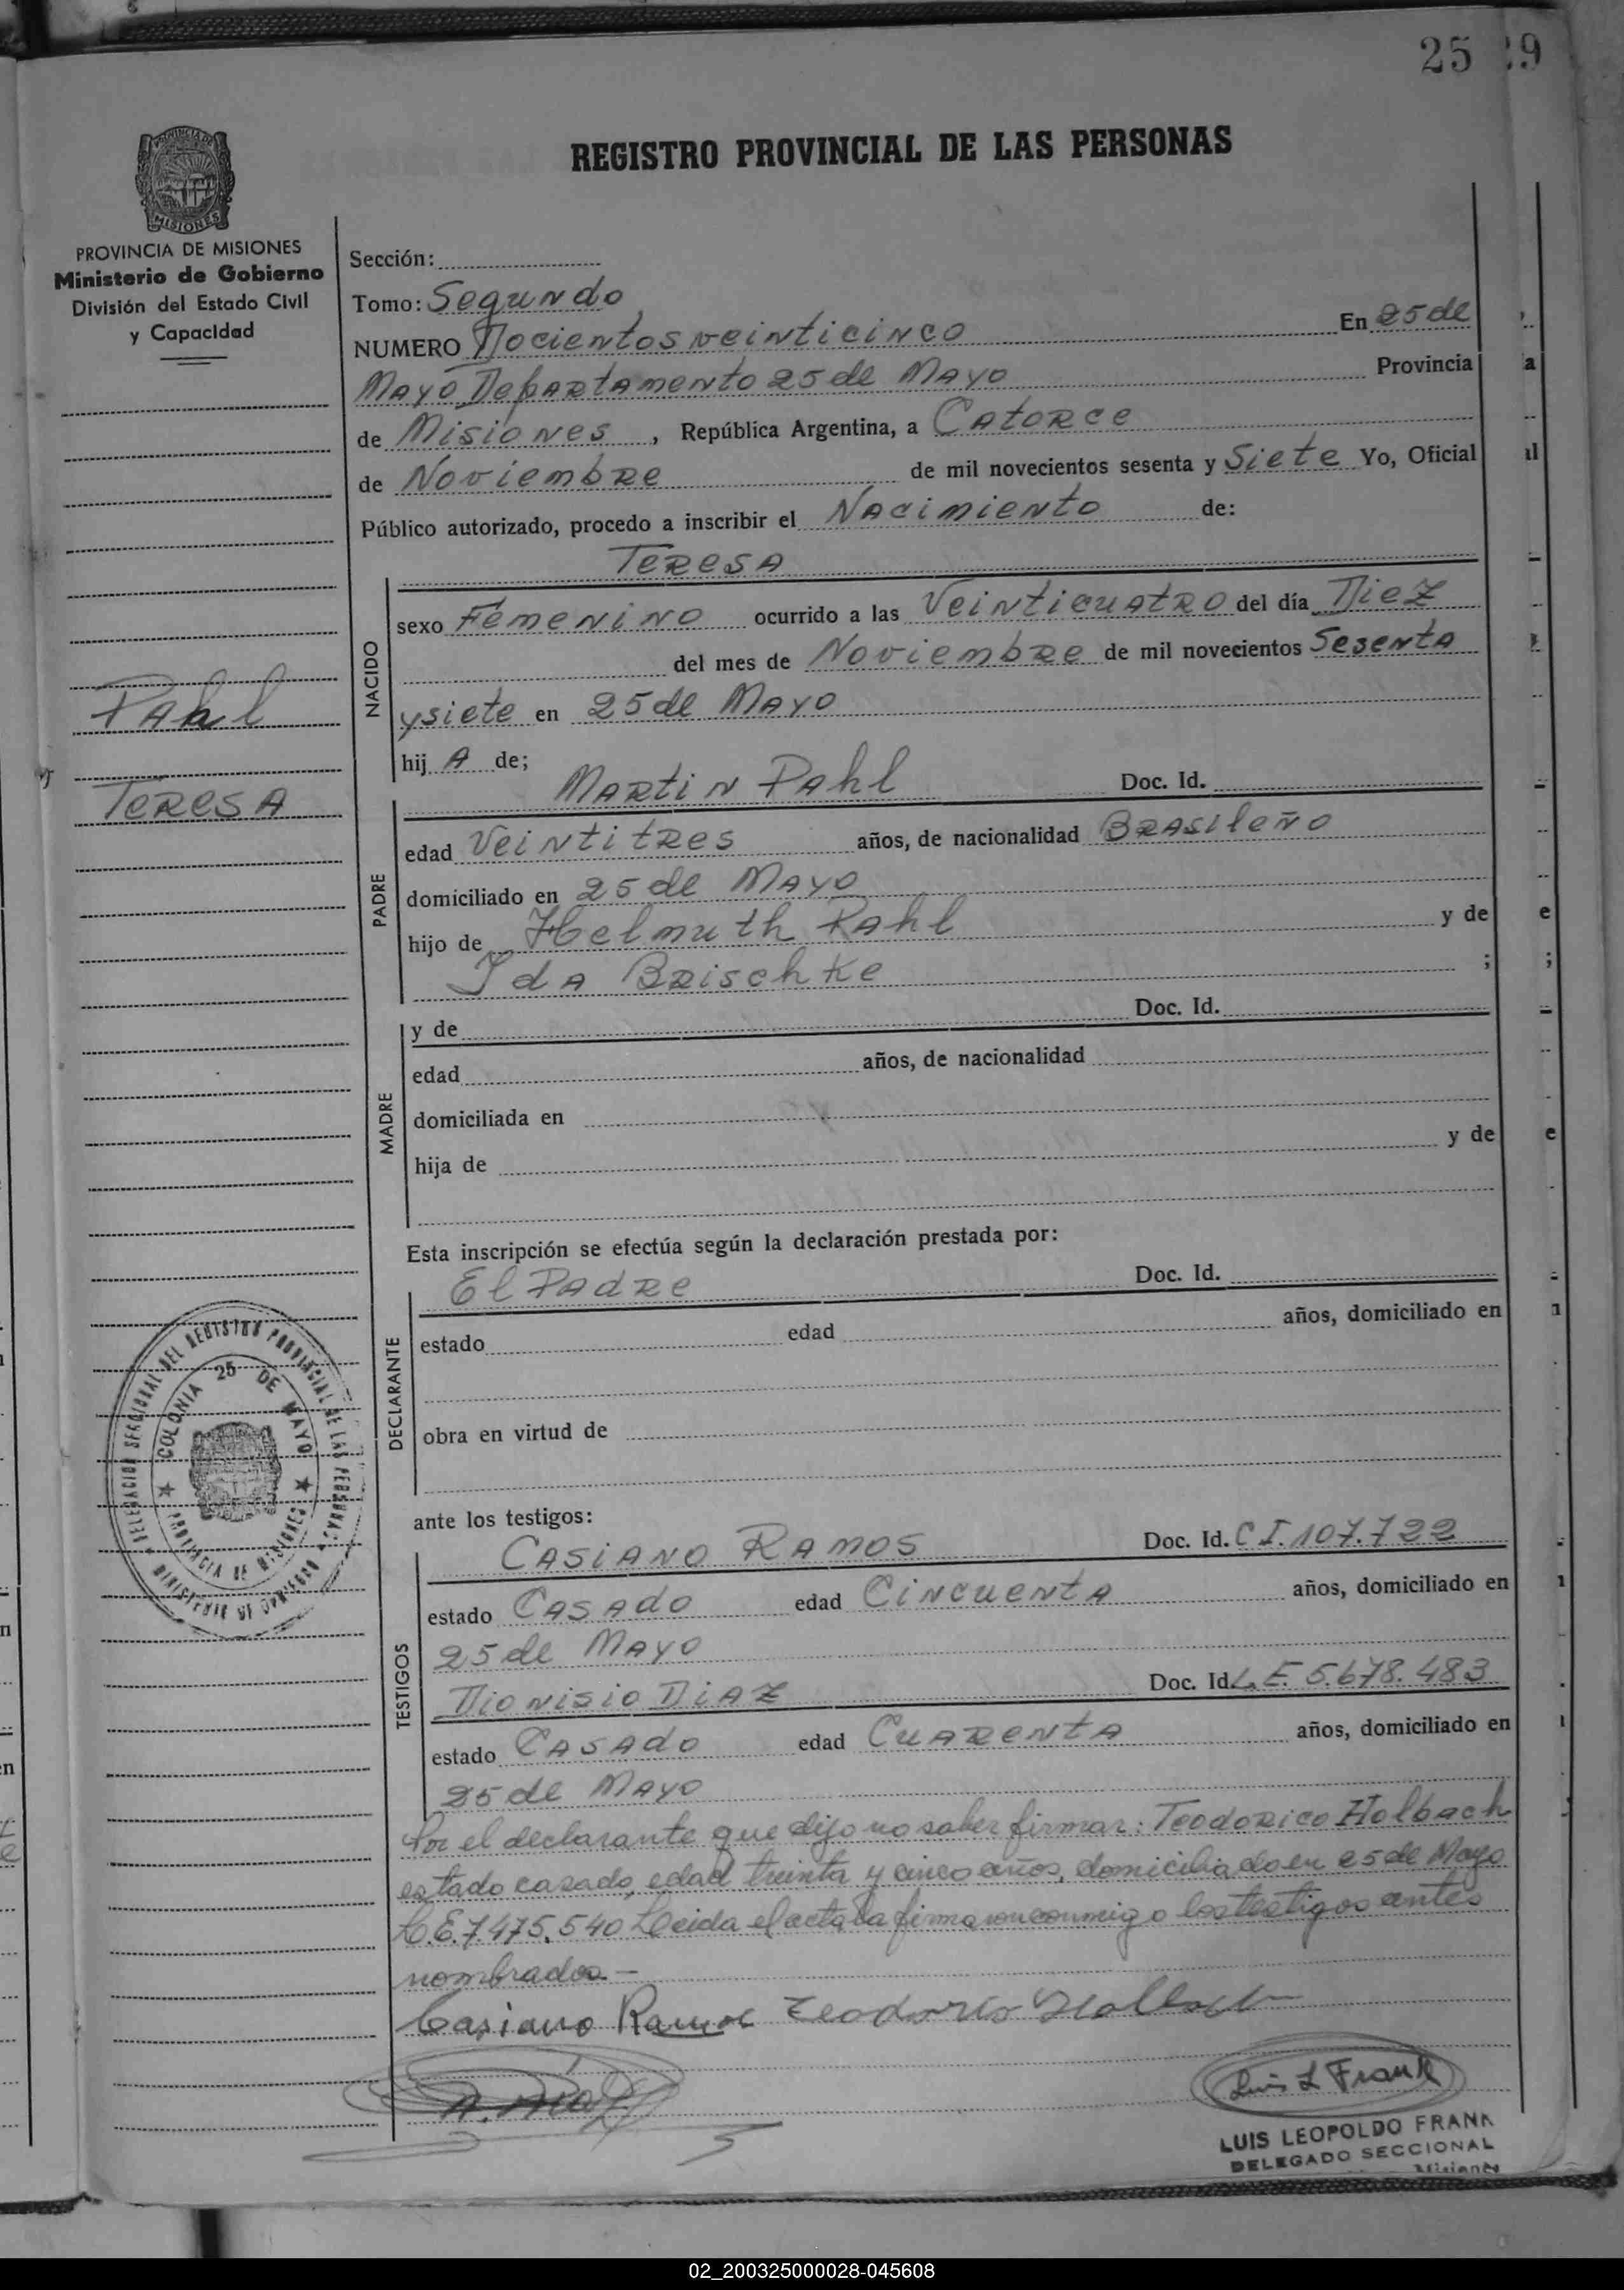 25 29
REGISTRO PROVINCIAL DE LAS PERSONAS
PROVINCIA DE MISIONES
Ministerio de Gobierno
División del Estado Civil
y Capacidad
Pahl
Teresa
Sección:
Tomo: Segundo
NUMERO Docientos veinticinco En 25 de
Mayo Departamento 25 de Mayo Provincia
de Misiones, República Argentina, a Catorce
de Noviembre de mil novecientos sesenta y Siete Yo, Oficial
Público autorizado, procedo a inscribir el Nacimiento de:
Teresa
NACIDO
sexo Femenino ocurrido a las Veinticuatro del día Diez
del mes de Noviembre de mil novecientos Sesenta
y siete en 25 de Mayo
hij A de;
Martin Pahl Doc. Id.
PADRE
edad Veintitres años, de nacionalidad Brasileño
domiciliado en 25 de Mayo
hijo de Helmuth Pahl y de
Ida Brischke ;
MADRE
y de Doc. Id.
edad años, de nacionalidad
domiciliada en
hija de y de
Esta inscripción se efectúa según la declaración prestada por:
El Padre Doc. Id.
DECLARANTE
estado edad años, domiciliado en
obra en virtud de
ante los testigos:
Casiano Ramos Doc. Id. C I. 107.722
TESTIGOS
estado Casado edad Cincuenta años, domiciliado en
25 de Mayo
Dionisio Diaz Doc. Id L. E. 5.678.483
estado Casado edad Cuarenta años, domiciliado en
25 de Mayo
Por el declarante que dijo no saber firmar: Teodorico Holbach
estado casado, edad treinta y cinco años, domiciliado en 25 de Mayo
L.E. 7.475.540 Leida el acta, la firma con conmigo los testigos antes
nombrados.—
Casiano Ramos Teodorico Holbach
D. Diaz
Luis L Frank
LUIS LEOPOLDO FRANK
DELEGADO SECCIONAL
Misiones
DELEGACION SECCIONAL DEL REGISTRO PROVINCIAL DE LAS PERSONAS
MINISTERIO DE GOBIERNO
COLONIA 25 DE MAYO
PROVINCIA DE MISIONES
02_200325000028-045608